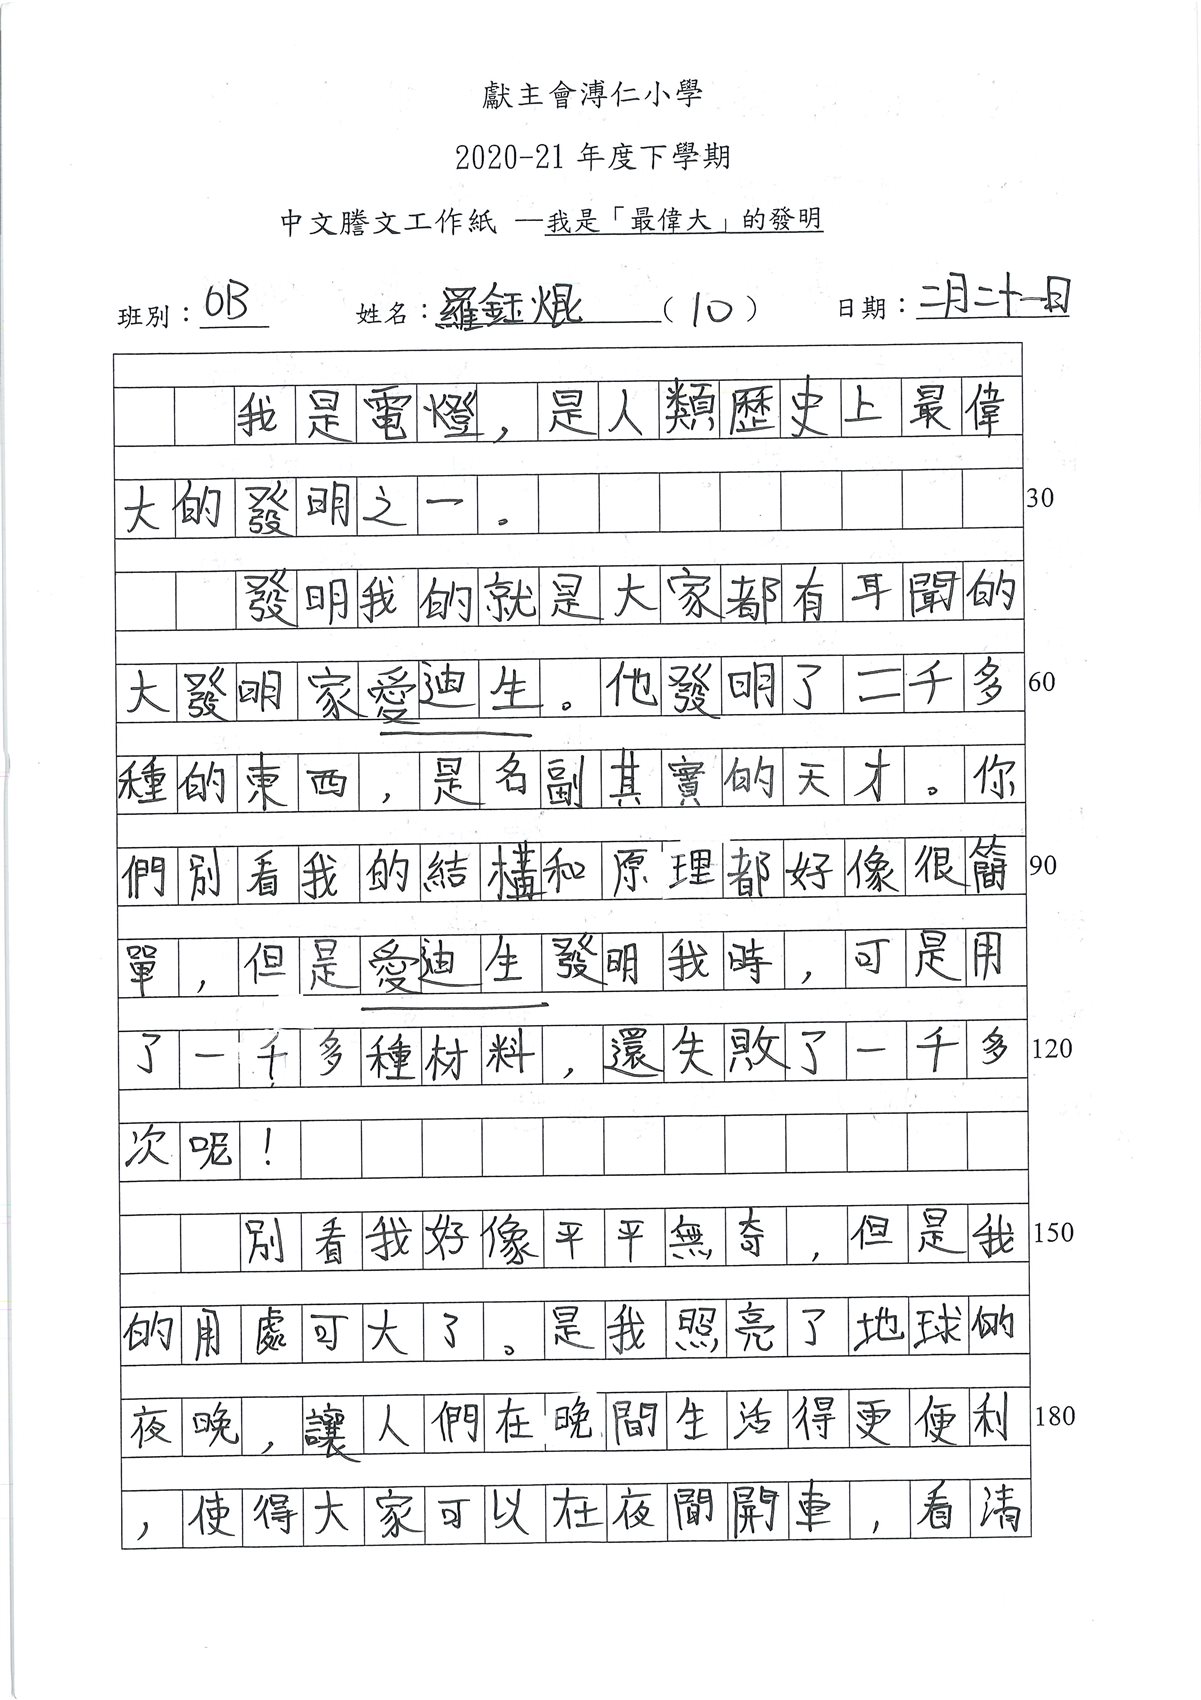 獻主會溥仁小學
2020-21 年度下學期
中文謄文工作紙 —我是「最偉大」的發明
班別：6B 姓名：羅鈺焜 （10） 日期：二月二十一日
我是電燈，是人類歷史上最偉
大的發明之一。 30
發明我的就是大家都有耳聞的
大發明家愛迪生。他發明了二千多 60
種的東西，是名副其實的天才。你
們別看我的結構和原理都好像很簡 90
單，但是愛迪生發明我時，可是用
了一千多種材料，還失敗了一千多 120
次呢！
別看我好像平平無奇，但是我 150
的用處可大了。是我照亮了地球的
夜晚，讓人們在晚間生活得更便利 180
，使得大家可以在夜間開車，看清